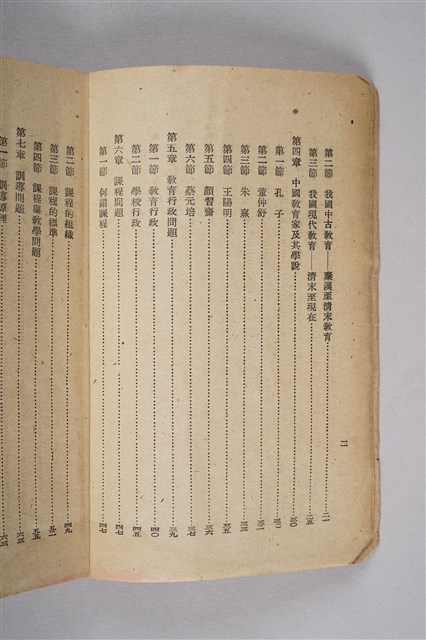 第二節　我國中古教育——秦漢至清末教育……二一
第三節　我國現代教育——清末至現在……二五
第四章　中國教育家及其學說……三〇
第一節　孔子……三〇
第二節　董仲舒……三一
第三節　朱熹……三三
第四節　王陽明……三五
第五節　顏習齋……三六
第六節　蔡元培……三七
第五章　教育行政問題……三九
第一節　教育行政……四〇
第二節　學校行政……四五
第六章　課程問題……四七
第一節　何謂課程……四七
第二節　課程的組織……四九
第三節　課程的標準……五一
第四節　課程與教學問題……五五
第七章　訓導問題……六三
第一節　訓導原理……六三
二